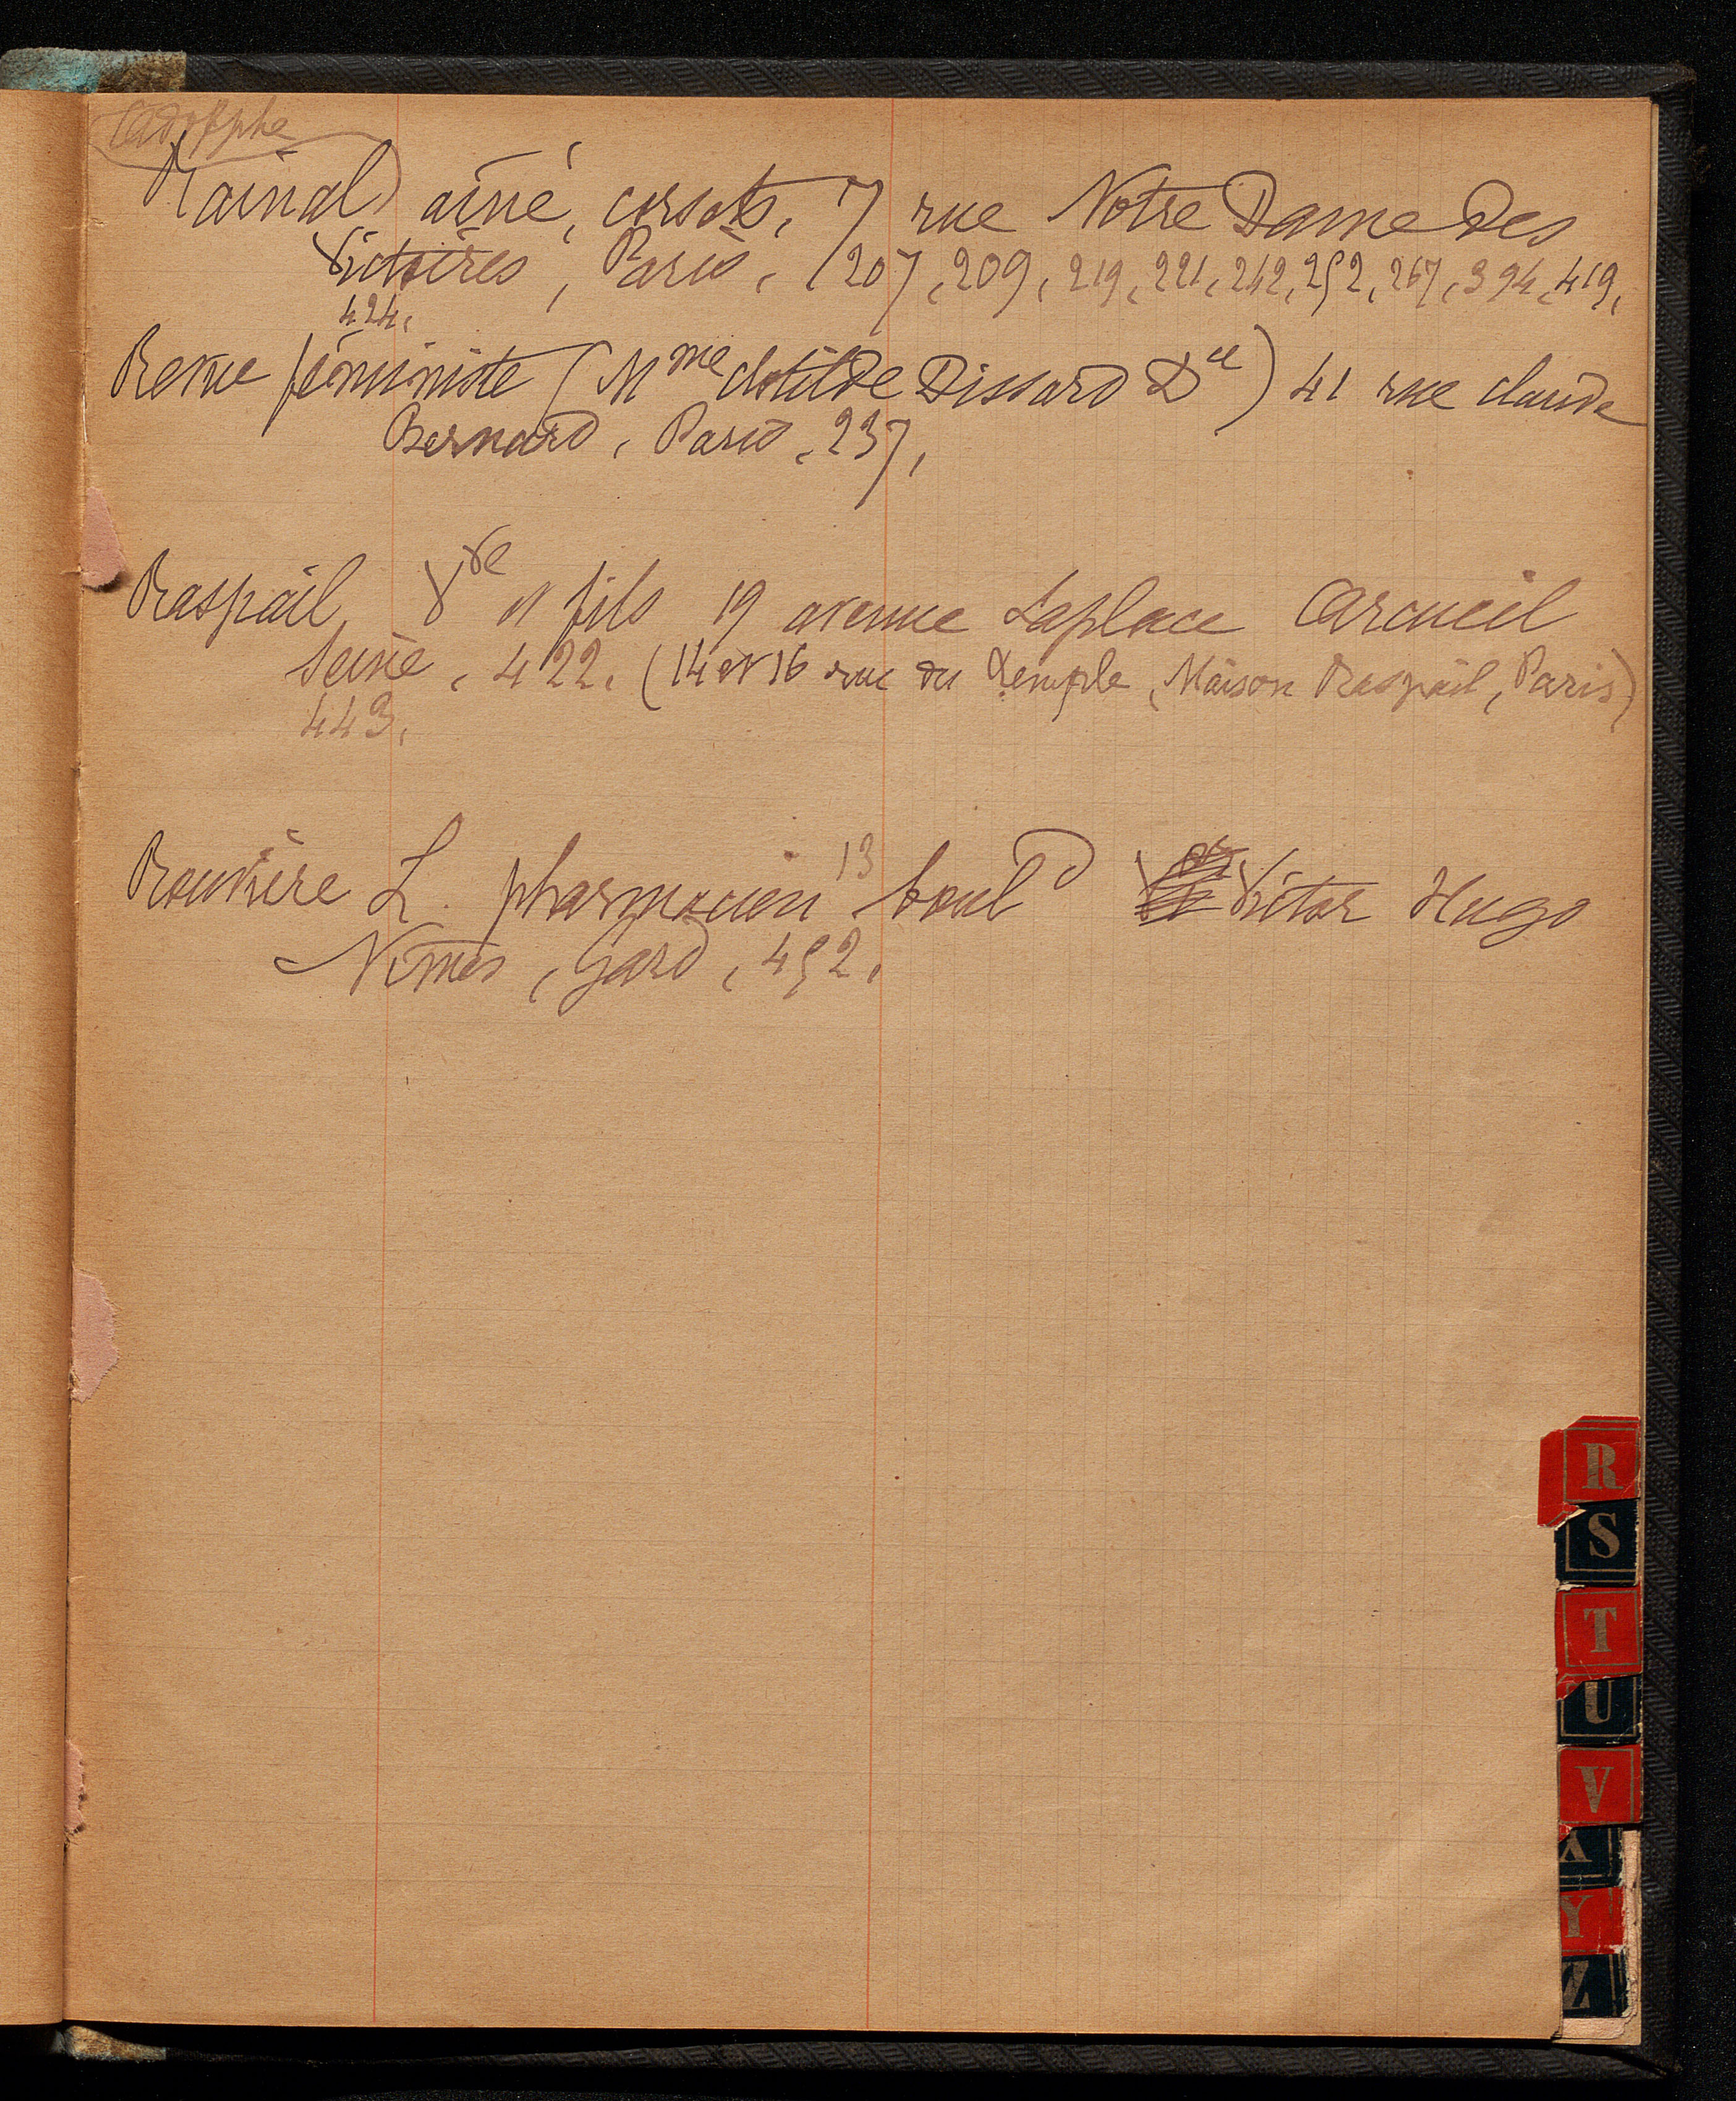 Adolphe
Rainal aîné, corsets, 7 rue Notre Dame des
Victoires, Paris, 207, 209, 219, 221, 242, 252, 267, 394, 419,
424,
Revue féministe (Mme Clotilde Dissard Dce) 41 rue Claude
Bernard, Paris, 237,
Raspail Vve et fils 19 avenue Laplace Arcueil
Seine, 422, (14 et 16 rue du Temple, Maison Raspail, Paris)
443,
Rouvière L. pharmacien 13 bould Victor Hugo
Nîmes, Gard, 452,
R
S
T
U
V
X
Y
Z